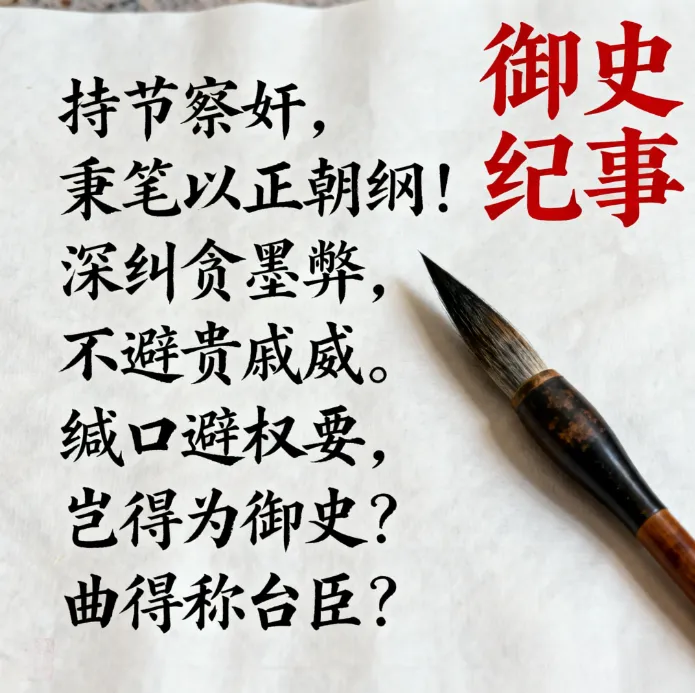 御史
纪事
持节察奸，
秉笔以正朝纲！
深纠贪墨弊，
不避贵戚威。
缄口避权要，
岂得为御史？
曲得称台臣？